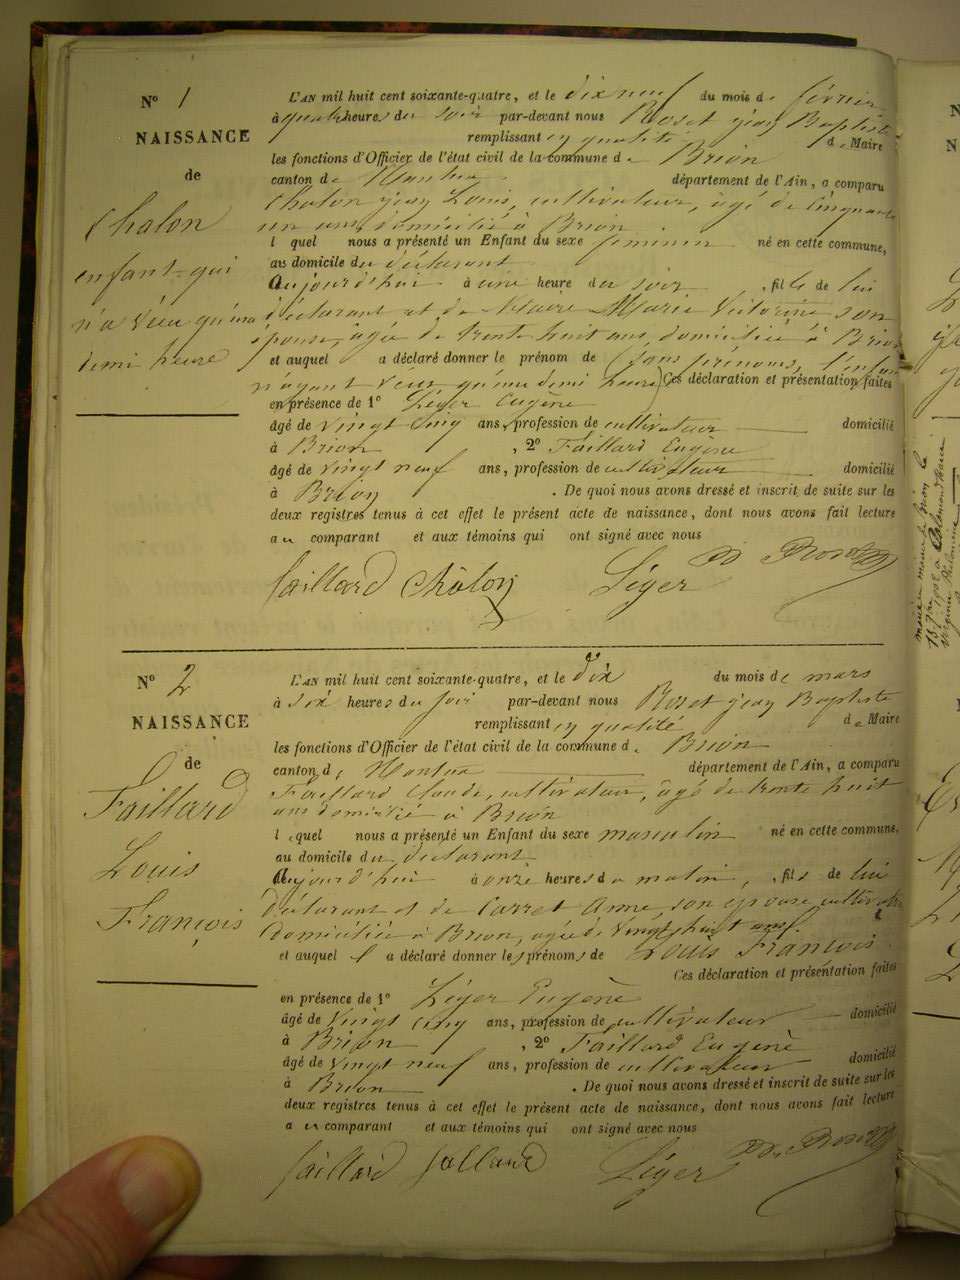 N° 1
NAISSANCE
de
Chalon
enfant qui
n'a vécu qu'une
demi heure
L'AN mil huit cent soixante-quatre, et le dix neuf du mois de février
à quatre heures du soir par-devant nous Rosset Jean Baptiste
remplissant en qualité de Maire
les fonctions d'Officier de l'état civil de la commune de Brion
canton de Nantua département de l'Ain, a comparu
Chalon Jean Louis, cultivateur, âgé de cinquante
un ans domicilié à Brion.
lequel nous a présenté un Enfant du sexe féminin né en cette commune,
au domicile du déclarant
Aujourd'hui à une heure du soir, fille de lui
déclarant et de Marie Victorine son
épouse, âgée de trente huit ans, domiciliée à Brion
et auquel a déclaré donner le prénom de (sans prénoms, l'enfant
n'ayant vécu qu'une demi heure) Ces déclaration et présentation faites
en présence de 1° Léger Eugène
âgé de vingt cinq ans, profession de cultivateur domicilié
à Brion, 2° Faillard Eugène
âgé de vingt neuf ans, profession de cultivateur domicilié
à Brion. De quoi nous avons dressé et inscrit de suite sur les
deux registres tenus à cet effet le présent acte de naissance, dont nous avons fait lecture
au comparant et aux témoins qui ont signé avec nous
Faillard Châlon Léger Rosset
N° 2
NAISSANCE
de
Faillard
Louis
François
L'AN mil huit cent soixante-quatre, et le dix du mois de mars
à six heures du soir par-devant nous Rosset Jean Baptiste
remplissant en qualité de Maire
les fonctions d'Officier de l'état civil de la commune de Brion
canton de Nantua département de l'Ain, a comparu
Faillard Claude, cultivateur, âgé de trente huit
ans domicilié à Brion
lequel nous a présenté un Enfant du sexe masculin né en cette commune,
au domicile du déclarant
Aujourd'hui à onze heures du matin, fils de lui
déclarant et de Carret Anne, son épouse, cultivatrice
domiciliée à Brion, âgée de vingt huit ans.
et auquel il a déclaré donner les prénoms de Louis François.
Ces déclaration et présentation faites
en présence de 1° Léger Eugène
âgé de vingt cinq ans, profession de cultivateur domicilié
à Brion, 2° Faillard Eugène
âgé de vingt neuf ans, profession de cultivateur domicilié
à Brion. De quoi nous avons dressé et inscrit de suite sur les
deux registres tenus à cet effet le présent acte de naissance, dont nous avons fait lecture
au comparant et aux témoins qui ont signé avec nous
Faillard Falland Léger Rosset